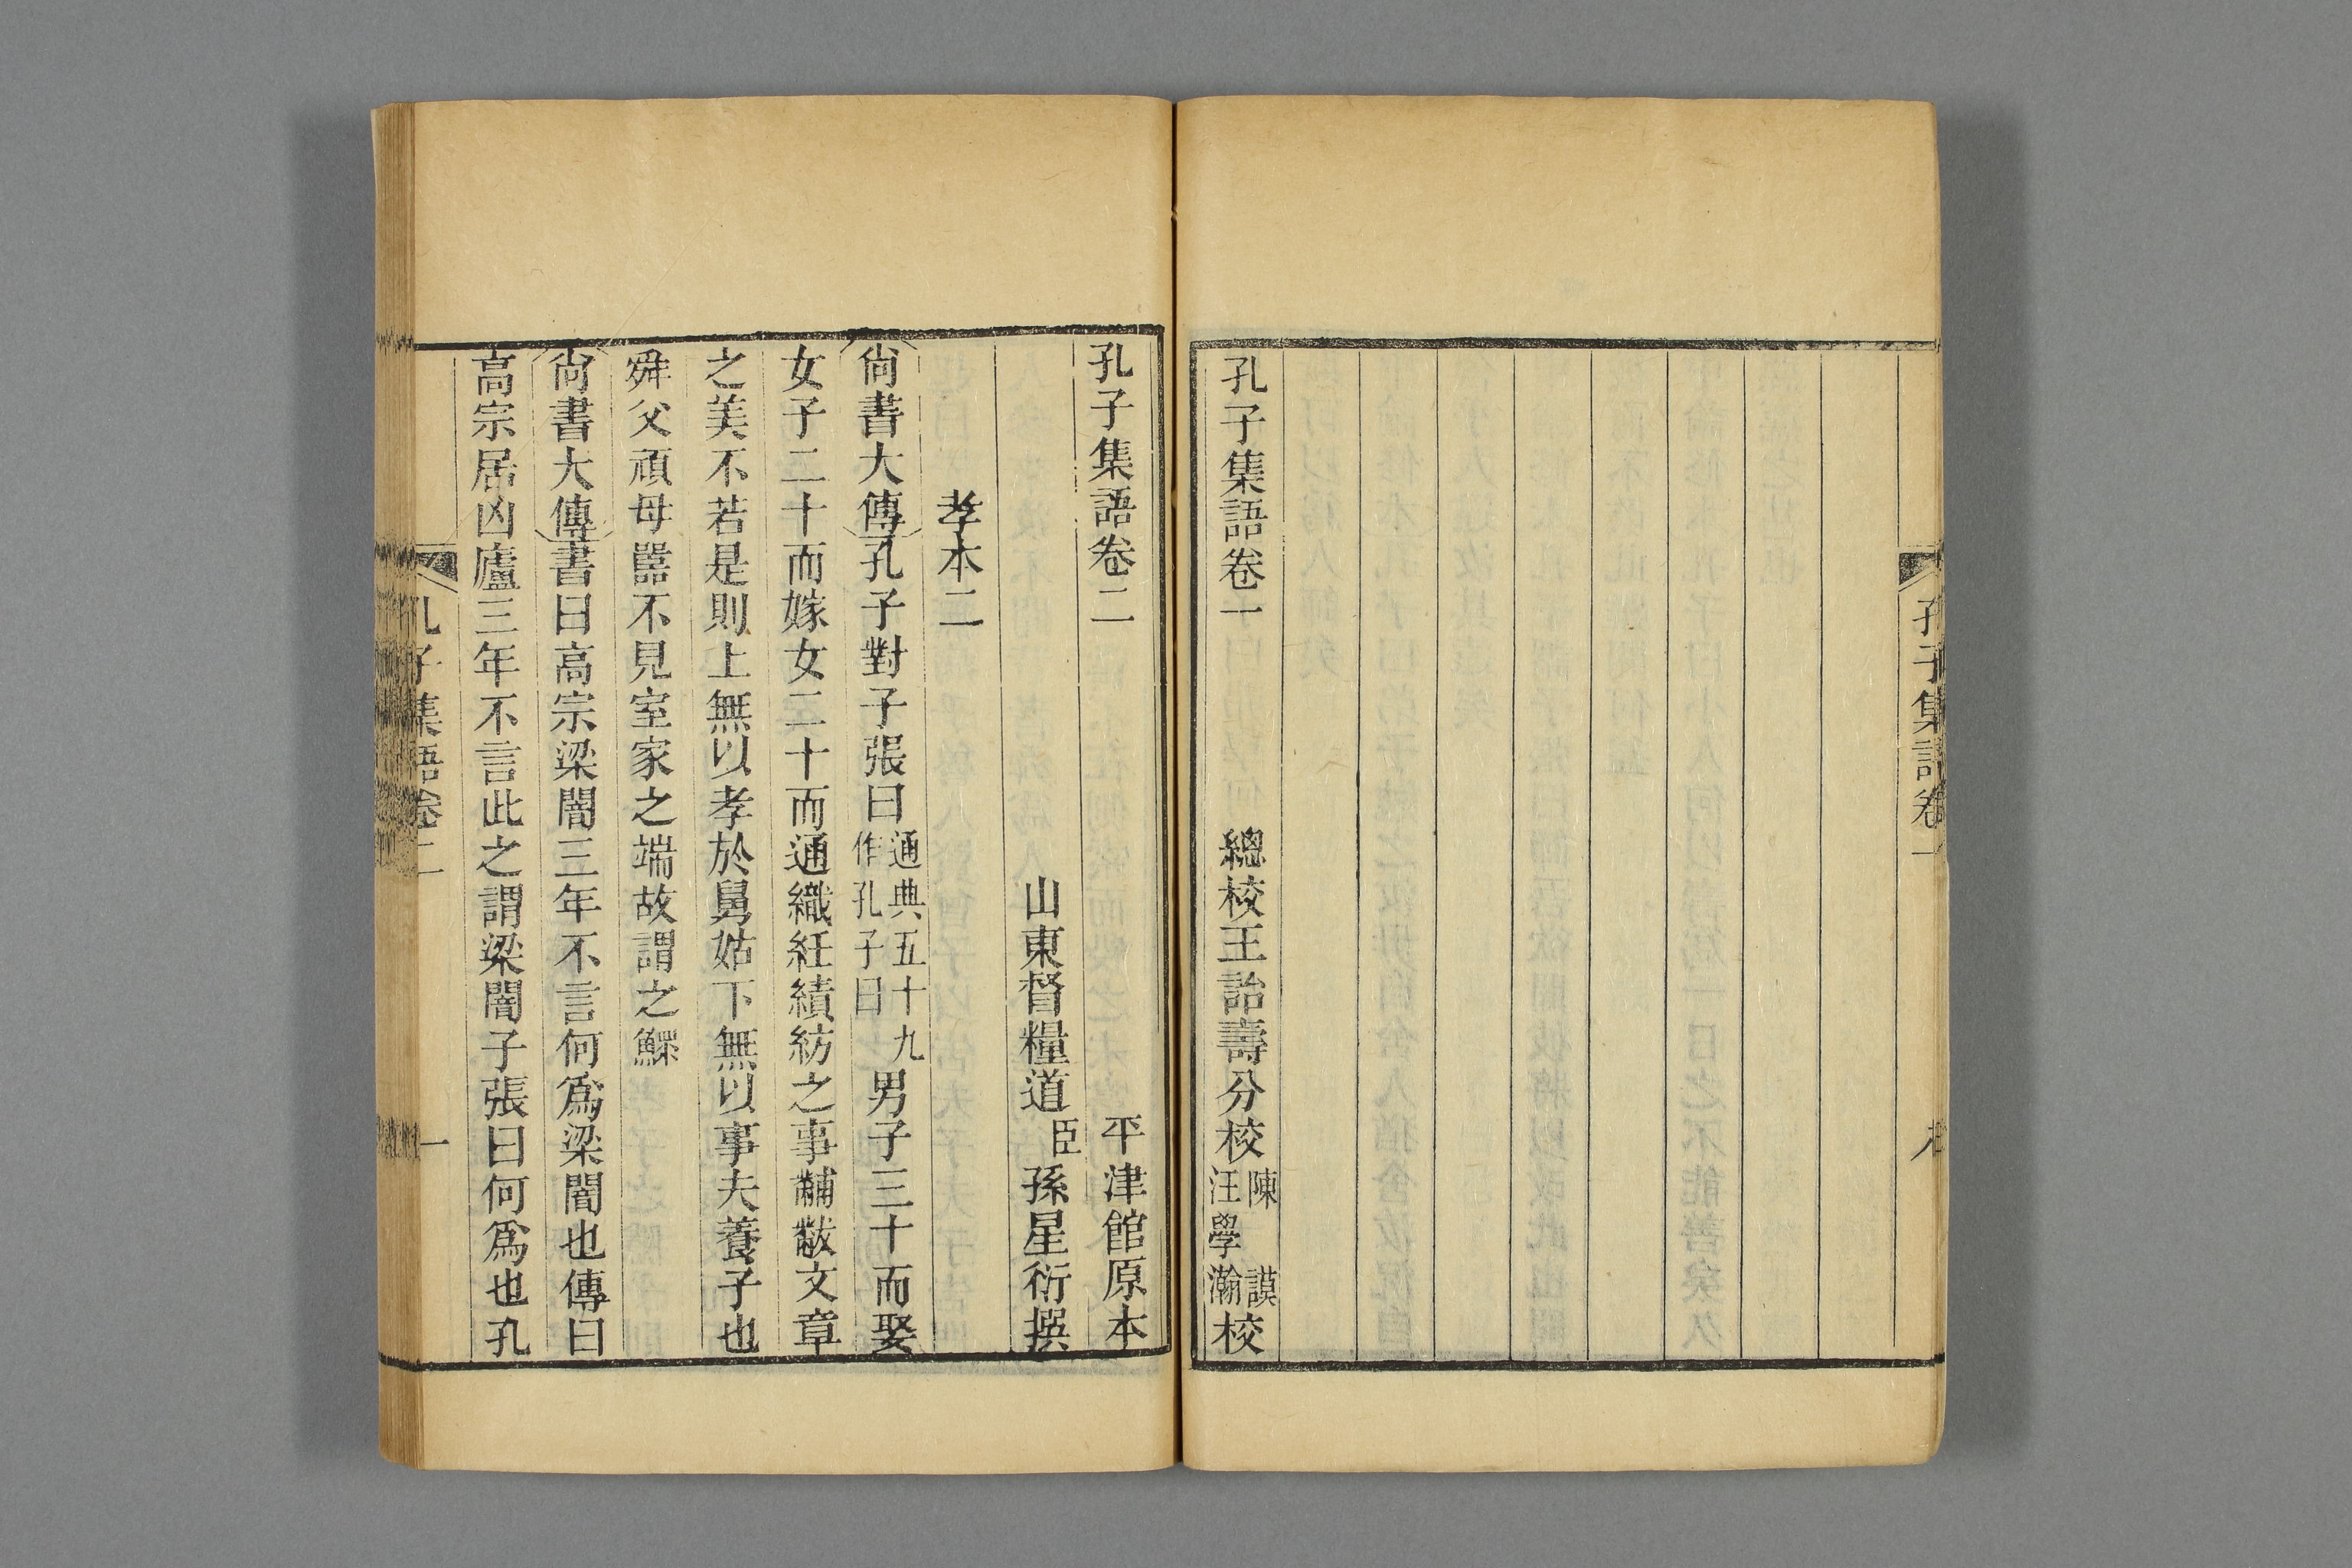 孔子集語卷一
孔子集語卷一　總校王詒壽分校陳謨汪學瀚校
孔子集語卷二　平津館原本
山東督糧道臣孫星衍撰
孝本二
尚書大傳孔子對子張曰通典五十九作孔子曰男子三十而娶
女子二十而嫁女二十而通織紝績紡之事黼黻文章
之美不若是則上無以孝於舅姑下無以事夫養子也
舜父頑母嚚不見室家之端故謂之鰥
尚書大傳書曰高宗梁闇三年不言何爲梁闇也傳曰
高宗居凶廬三年不言此之謂梁闇子張曰何爲也孔
孔子集語卷二　一